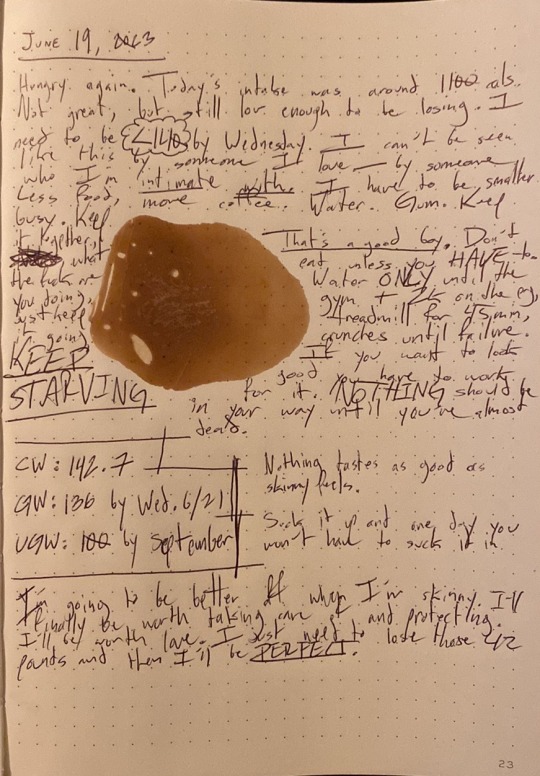 JUNE 19, 2023
Hungry again. Today's intake was around 1100 cals.
Not great, but still low enough to be losing. I
need to be <140 by Wednesday. I can't be seen
like this by someone I love — by someone
who I'm intimate with. I have to be smaller.
Less food, more coffee. Water. Gum. Keep
busy. Keep
it together,
what
the fuck are
you doing,
just keep
it going
KEEP
STARVING
That's a good boy. Don't
eat unless you HAVE to.
Water ONLY until the
gym, + on the
treadmill for 45 min,
crunches until failure.
If you want to look
good you have to work
for it. NOTHING should be
in your way until you've almost
died.
CW: 142.7
GW: 136 by Wed. 6/21
UGW: 100 by September
Nothing tastes as good as
skinny feels.
Suck it up and one day you
won't have to suck it in.
I'm going to be better when I'm skinny. I'll
finally be worth taking care of and protecting.
I'll be worth love. I just need to lose those 42
pounds and then I'll be PERFECT.